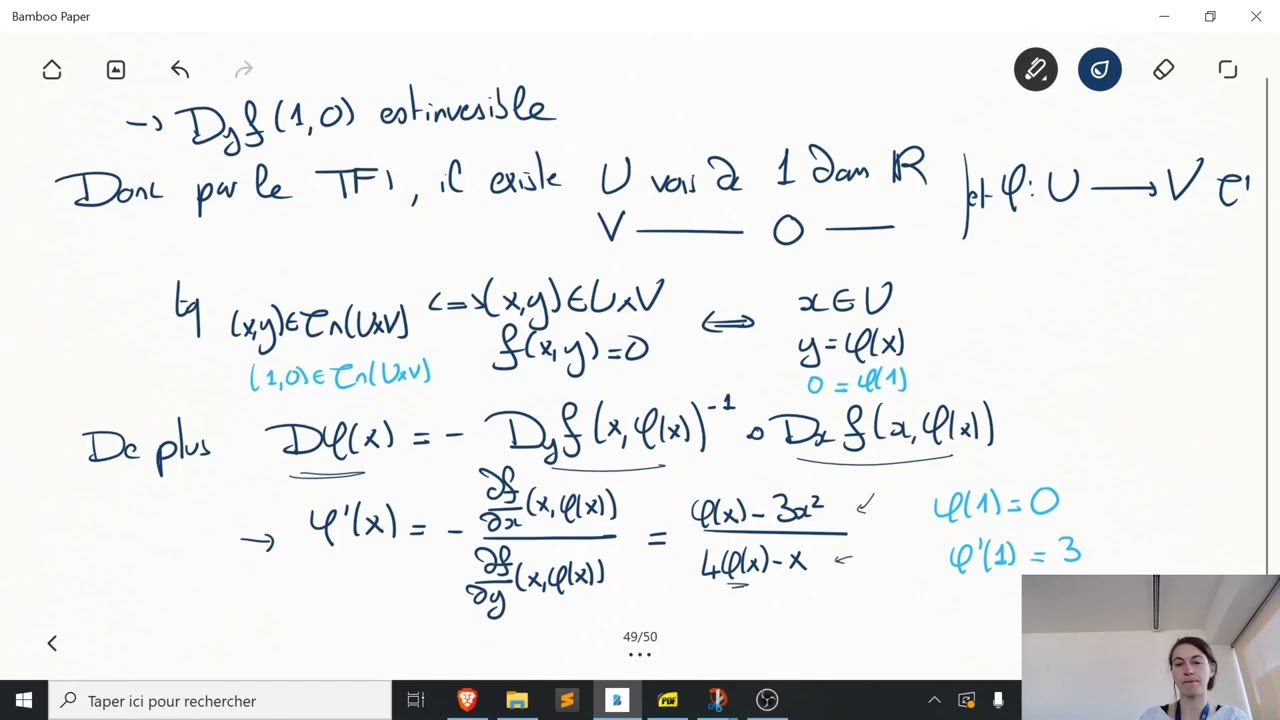 Bamboo Paper
→ D_y f(1,0) est invesible
Donc par le TFI, il existe U vois de 1 dans ℝ | et φ: U → V C¹
V —— 0 ——
tq (x,y) ∈ C∩(U×V) <=> (x,y) ∈ U×V ⟺ x ∈ U
f(x,y) = 0 y = φ(x)
(1,0) ∈ C∩(U×V) 0 = φ(1)
De plus Dφ(x) = - D_y f(x,φ(x))⁻¹ ∘ D_x f(x,φ(x))
→ φ'(x) = - ∂f/∂x (x,φ(x)) / ∂f/∂y (x,φ(x)) = (φ(x) - 3x²) / (4φ(x) - x)
φ(1) = 0
φ'(1) = 3
49/50
Taper ici pour rechercher
PDF